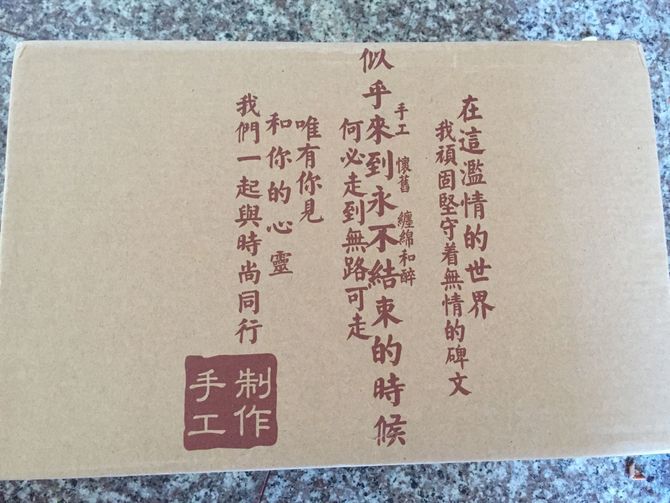 在這濫情的世界
我頑固堅守着無情的碑文
手工 懷舊 纏綿和醉
似乎來到永不結束的時候
何必走到無路可走
唯有你見
和你的心靈
我們一起與時尚同行
制作
手工